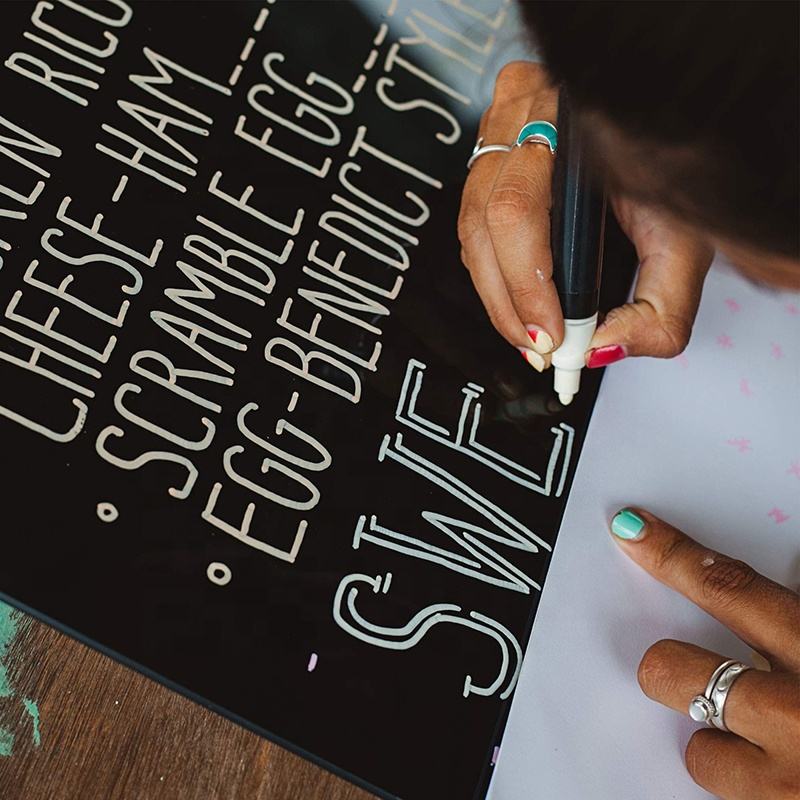 RICO
CHEESE-HAM
SCRAMBLE EGG
EGG-BENEDICT STYLE
SWE